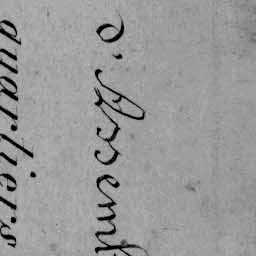 d'Assem
quartiers